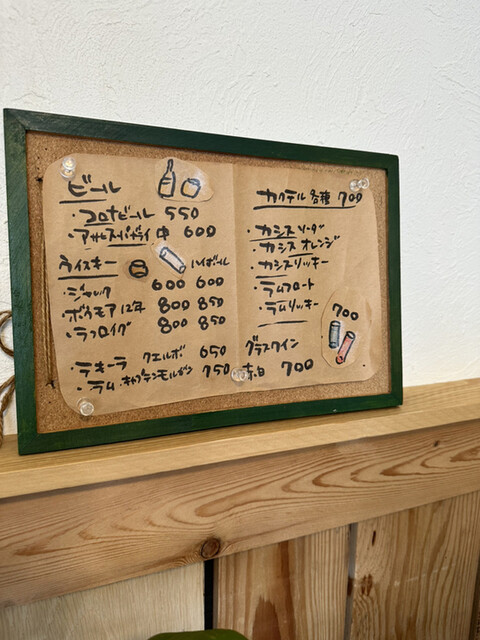 ビール
・コロナビール 550
・アサヒスーパードライ 中 600
ウイスキー ハイボール
・ジャック 600 600
・ボウモア12年 800 850
・ラフロイグ 800 850
・テキーラ クエルボ 650
・ラム.キャプテンモルガン 750
カクテル各種 700
・カシスソーダ
・カシスオレンジ
・カシスリッキー
・ラムフロート
・ラムリッキー
700
グラスワイン
赤白 700